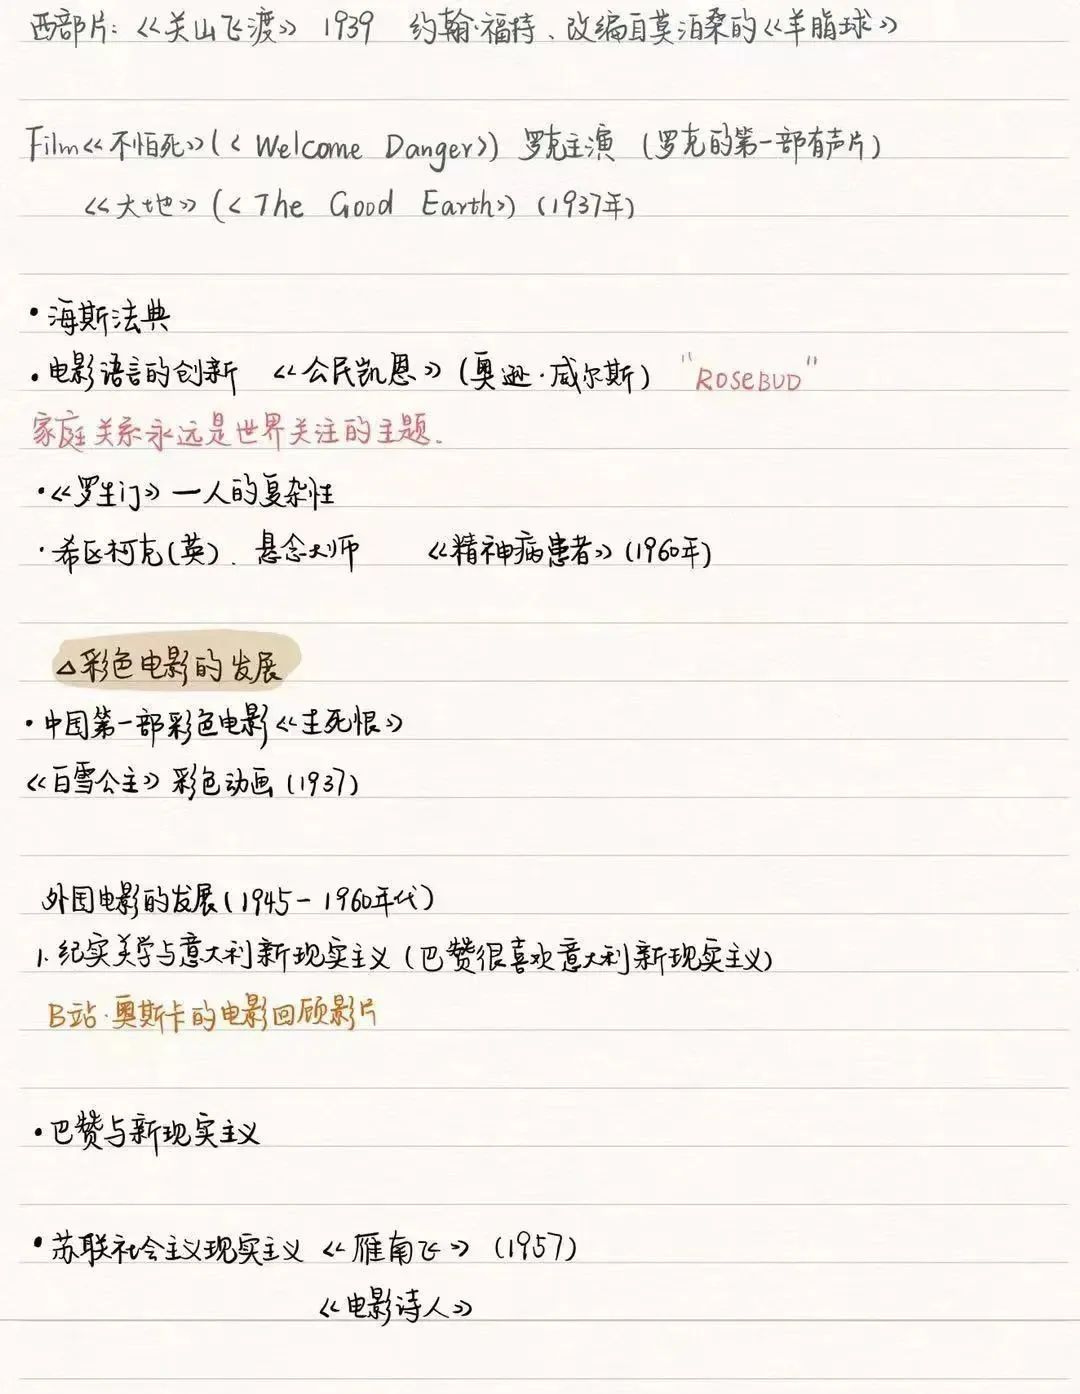 西部片：《关山飞渡》 1939 约翰·福特、改编自莫泊桑的《羊脂球》
Film《不怕死》(《Welcome Danger》) 罗克主演 (罗克的第一部有声片)
《大地》(《The Good Earth》) (1937年)
·海斯法典
·电影语言的创新 《公民凯恩》(奥逊·威尔斯) "ROSEBUD"
家庭关系永远是世界关注的主题.
·《罗生门》一人的复杂性
·希区柯克(英). 悬念大师 《精神病患者》(1960年)
△彩色电影的发展
·中国第一部彩色电影《生死恨》
《白雪公主》彩色动画 (1937)
外国电影的发展(1945-1960年代)
1. 纪实美学与意大利新现实主义 (巴赞很喜欢意大利新现实主义)
B站·奥斯卡的电影回顾影片
·巴赞与新现实主义
·苏联社会主义现实主义 《雁南飞》 (1957)
《电影诗人》